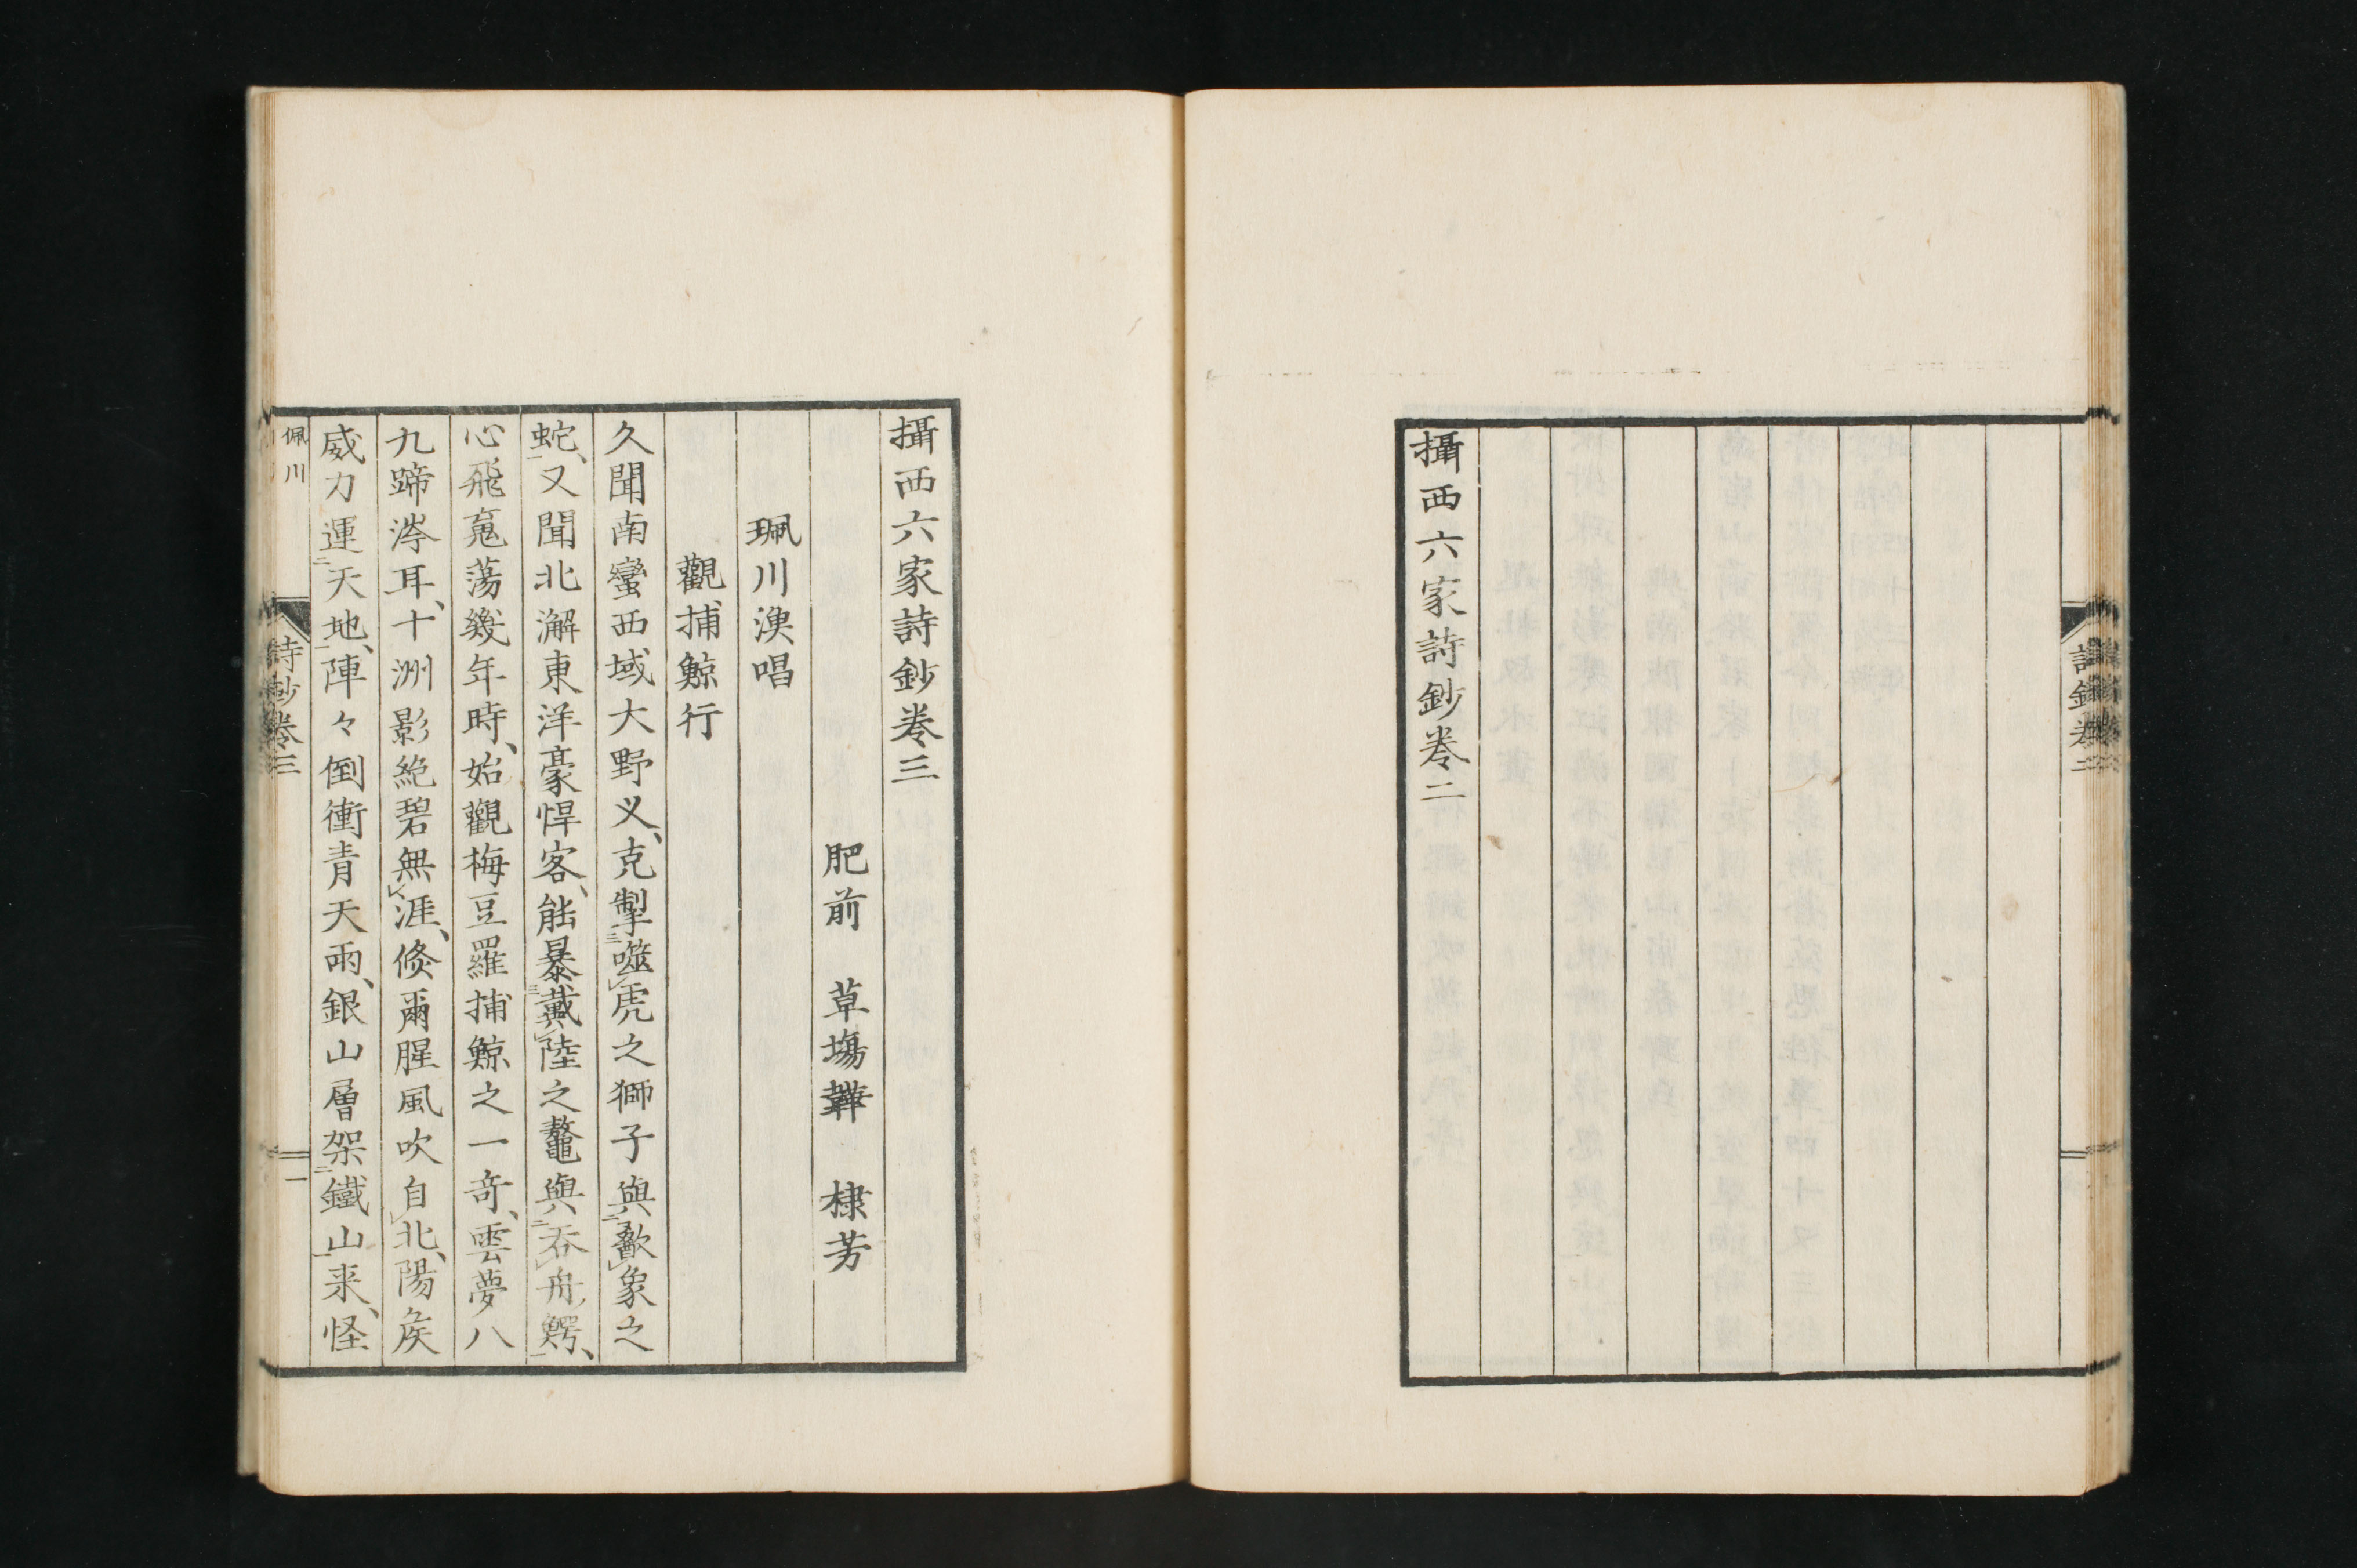 詩鈔卷二
攝西六家詩鈔卷二
攝西六家詩鈔卷三
肥前 草塲韡 棣芳
珮川漁唱
觀捕鯨行
久聞南蠻西域大野义、克掣噬虎之獅子與歠象之
蛇、又聞北澥東洋豪悍客、能暴戴陸之鼇與吞舟鰐、
心飛䰟蕩幾年時、始觀梅豆羅捕鯨之一奇、雲夢八
九蹄涔耳、十洲影絶碧無涯、倏爾腥風吹自北、陽矦
威力運天地、陣々倒衝青天雨、銀山層架鐵山来、怪
佩川
詩鈔卷三
一